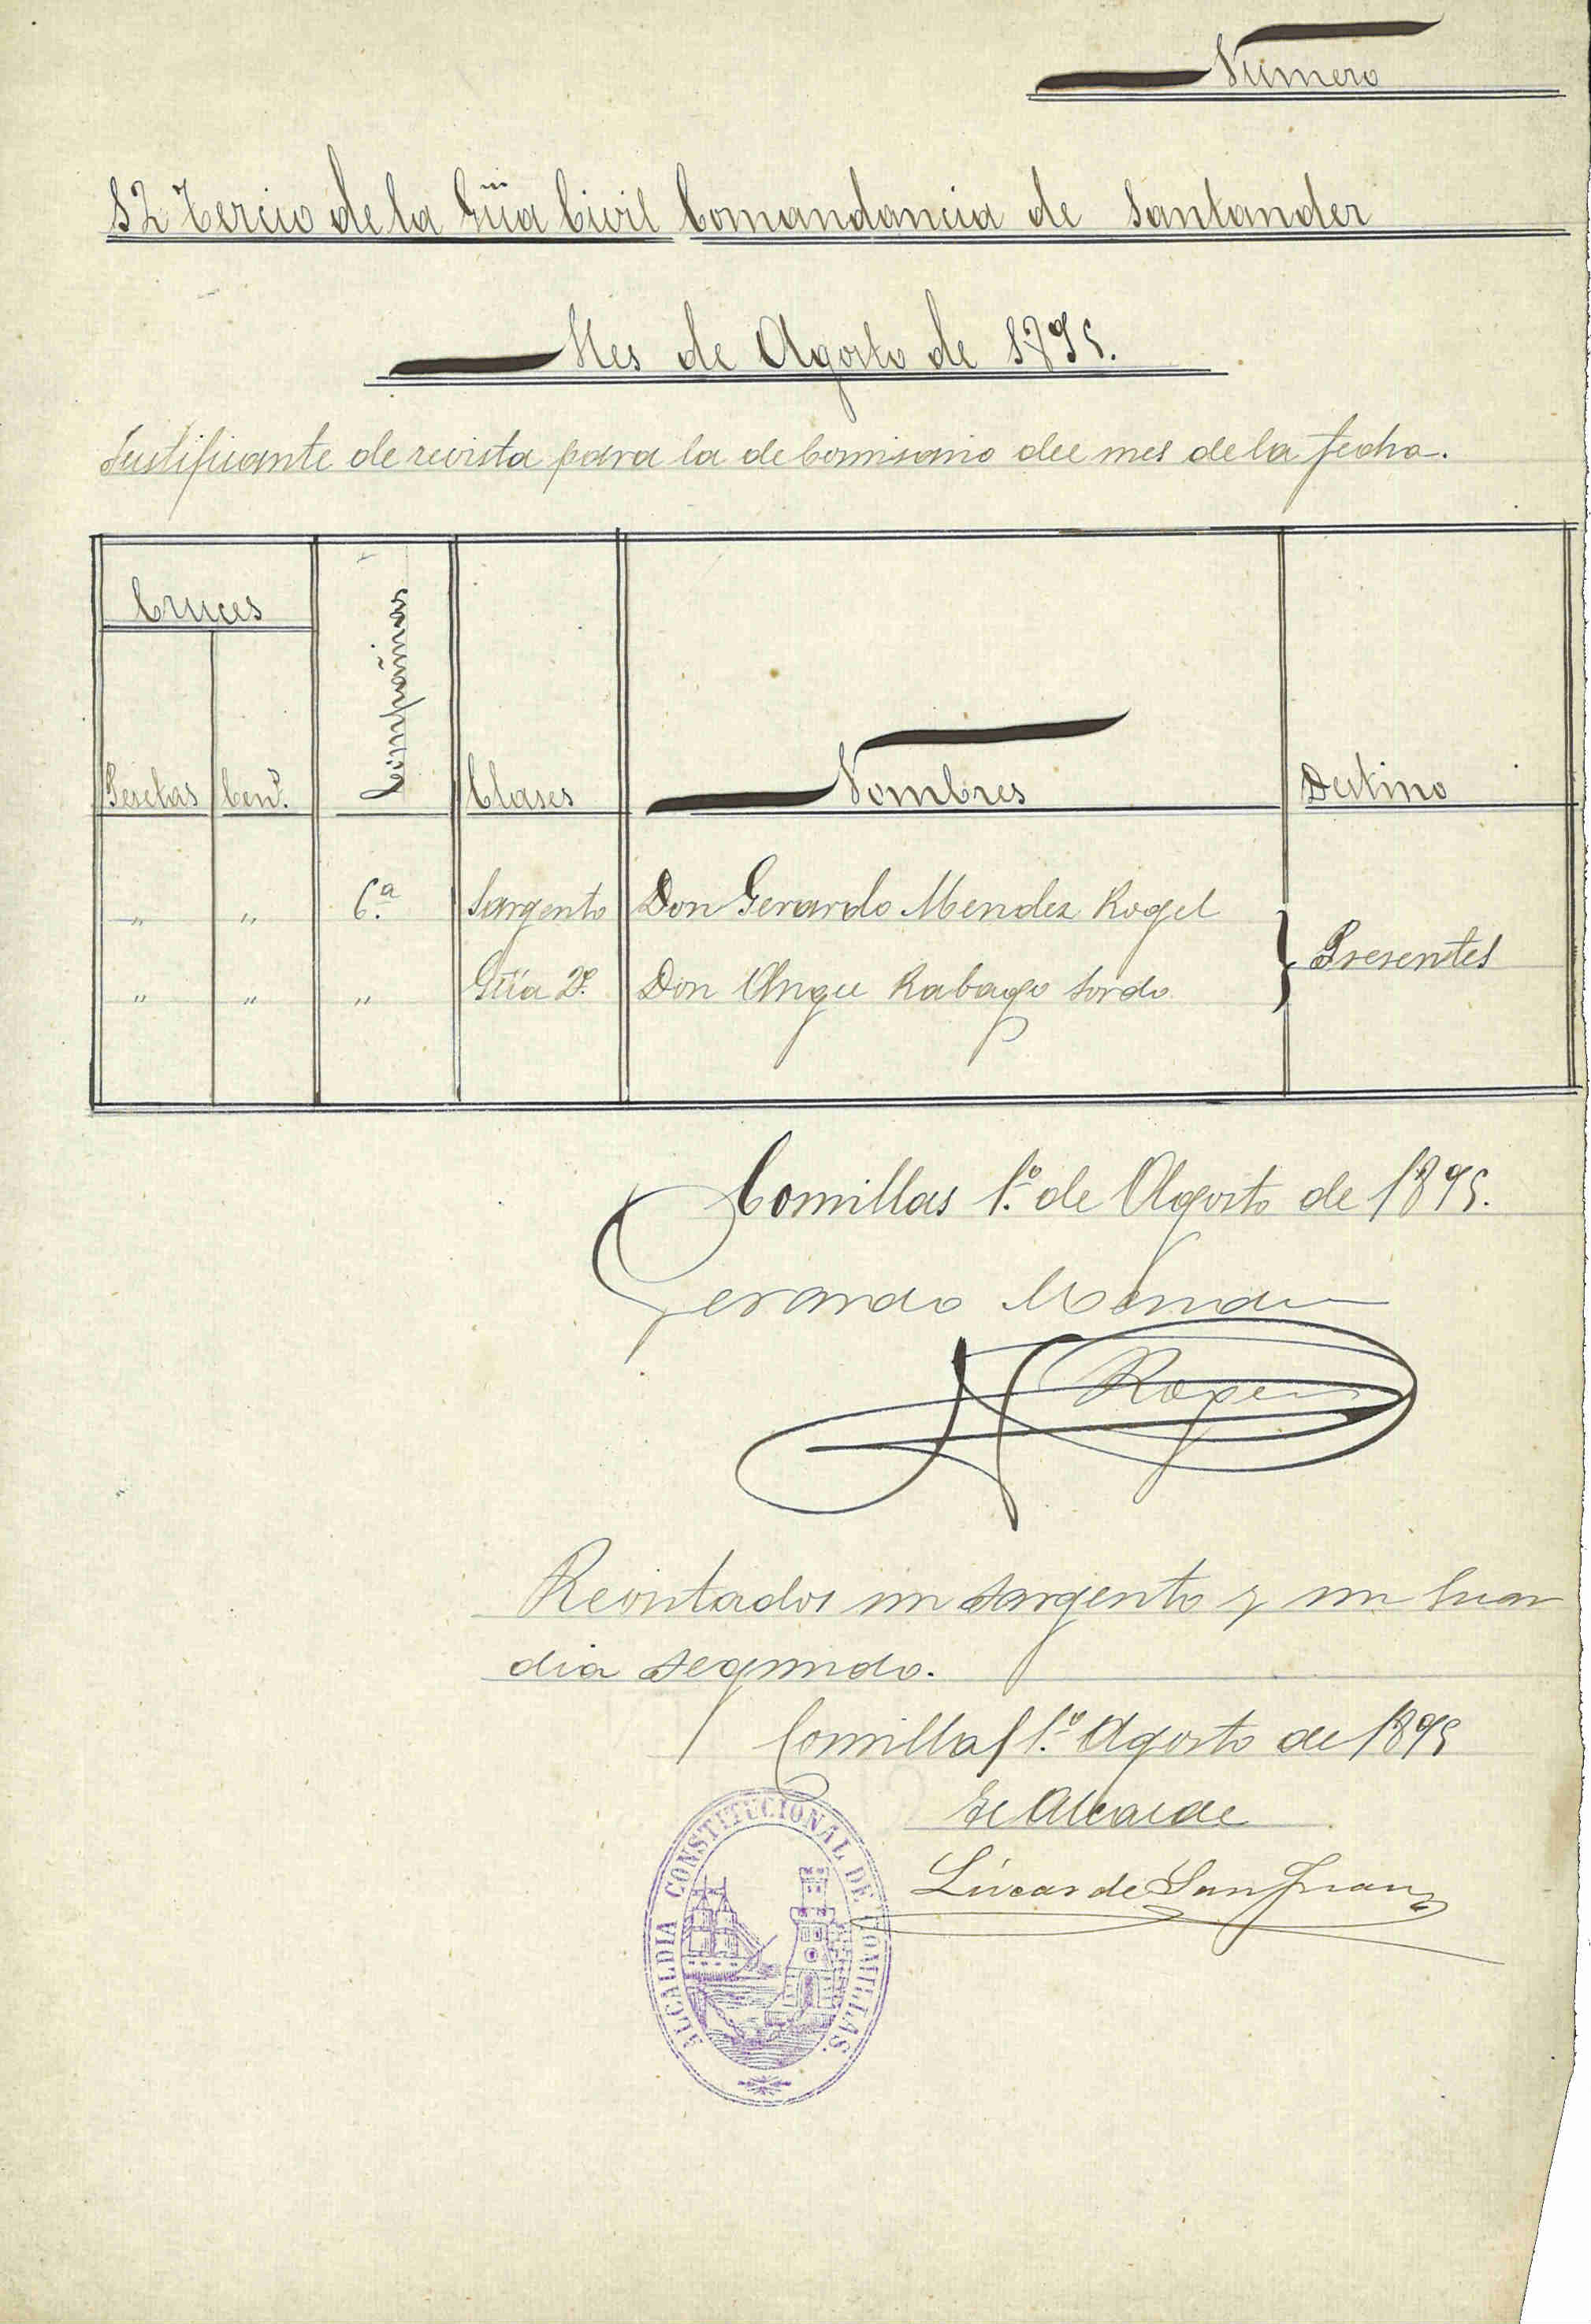 Número
12 Tercio de la Gũia Civil Comandancia de Santander
Mes de Agosto de 1895.
Justificante de revista para la de Comisario del mes de la fecha.
Cruces
Pesetas
Cent.
Compañias
Clases
Nombres
Destino
" " 6.ª Sargento Don Gerardo Mendez Rogel
Presentes
" " " Gũia 2º. Don Angel Rabago Sordo
Comillas 1.º de Agosto de 1895.
Gerardo Mendez
Rogel
Revistados un sargento y un Guar
dia segundo.
Comillas 1.º Agosto de 1895
El Alcalde
Lúcas de San Juan
ALCALDIA CONSTITUCIONAL DE COMILLAS.